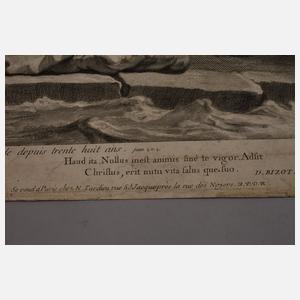 le depuis trente huit ans. Joan. 5. v. 5.
Haud ita. Nullus inest animis sine te vigor. Adsit
Christus, erit nutu vita salus que suo. D. BIZOT
Se vend a Paris chez N. Tardieu rue S. Jacque pres la rue des Noyers. A.P.D.R.